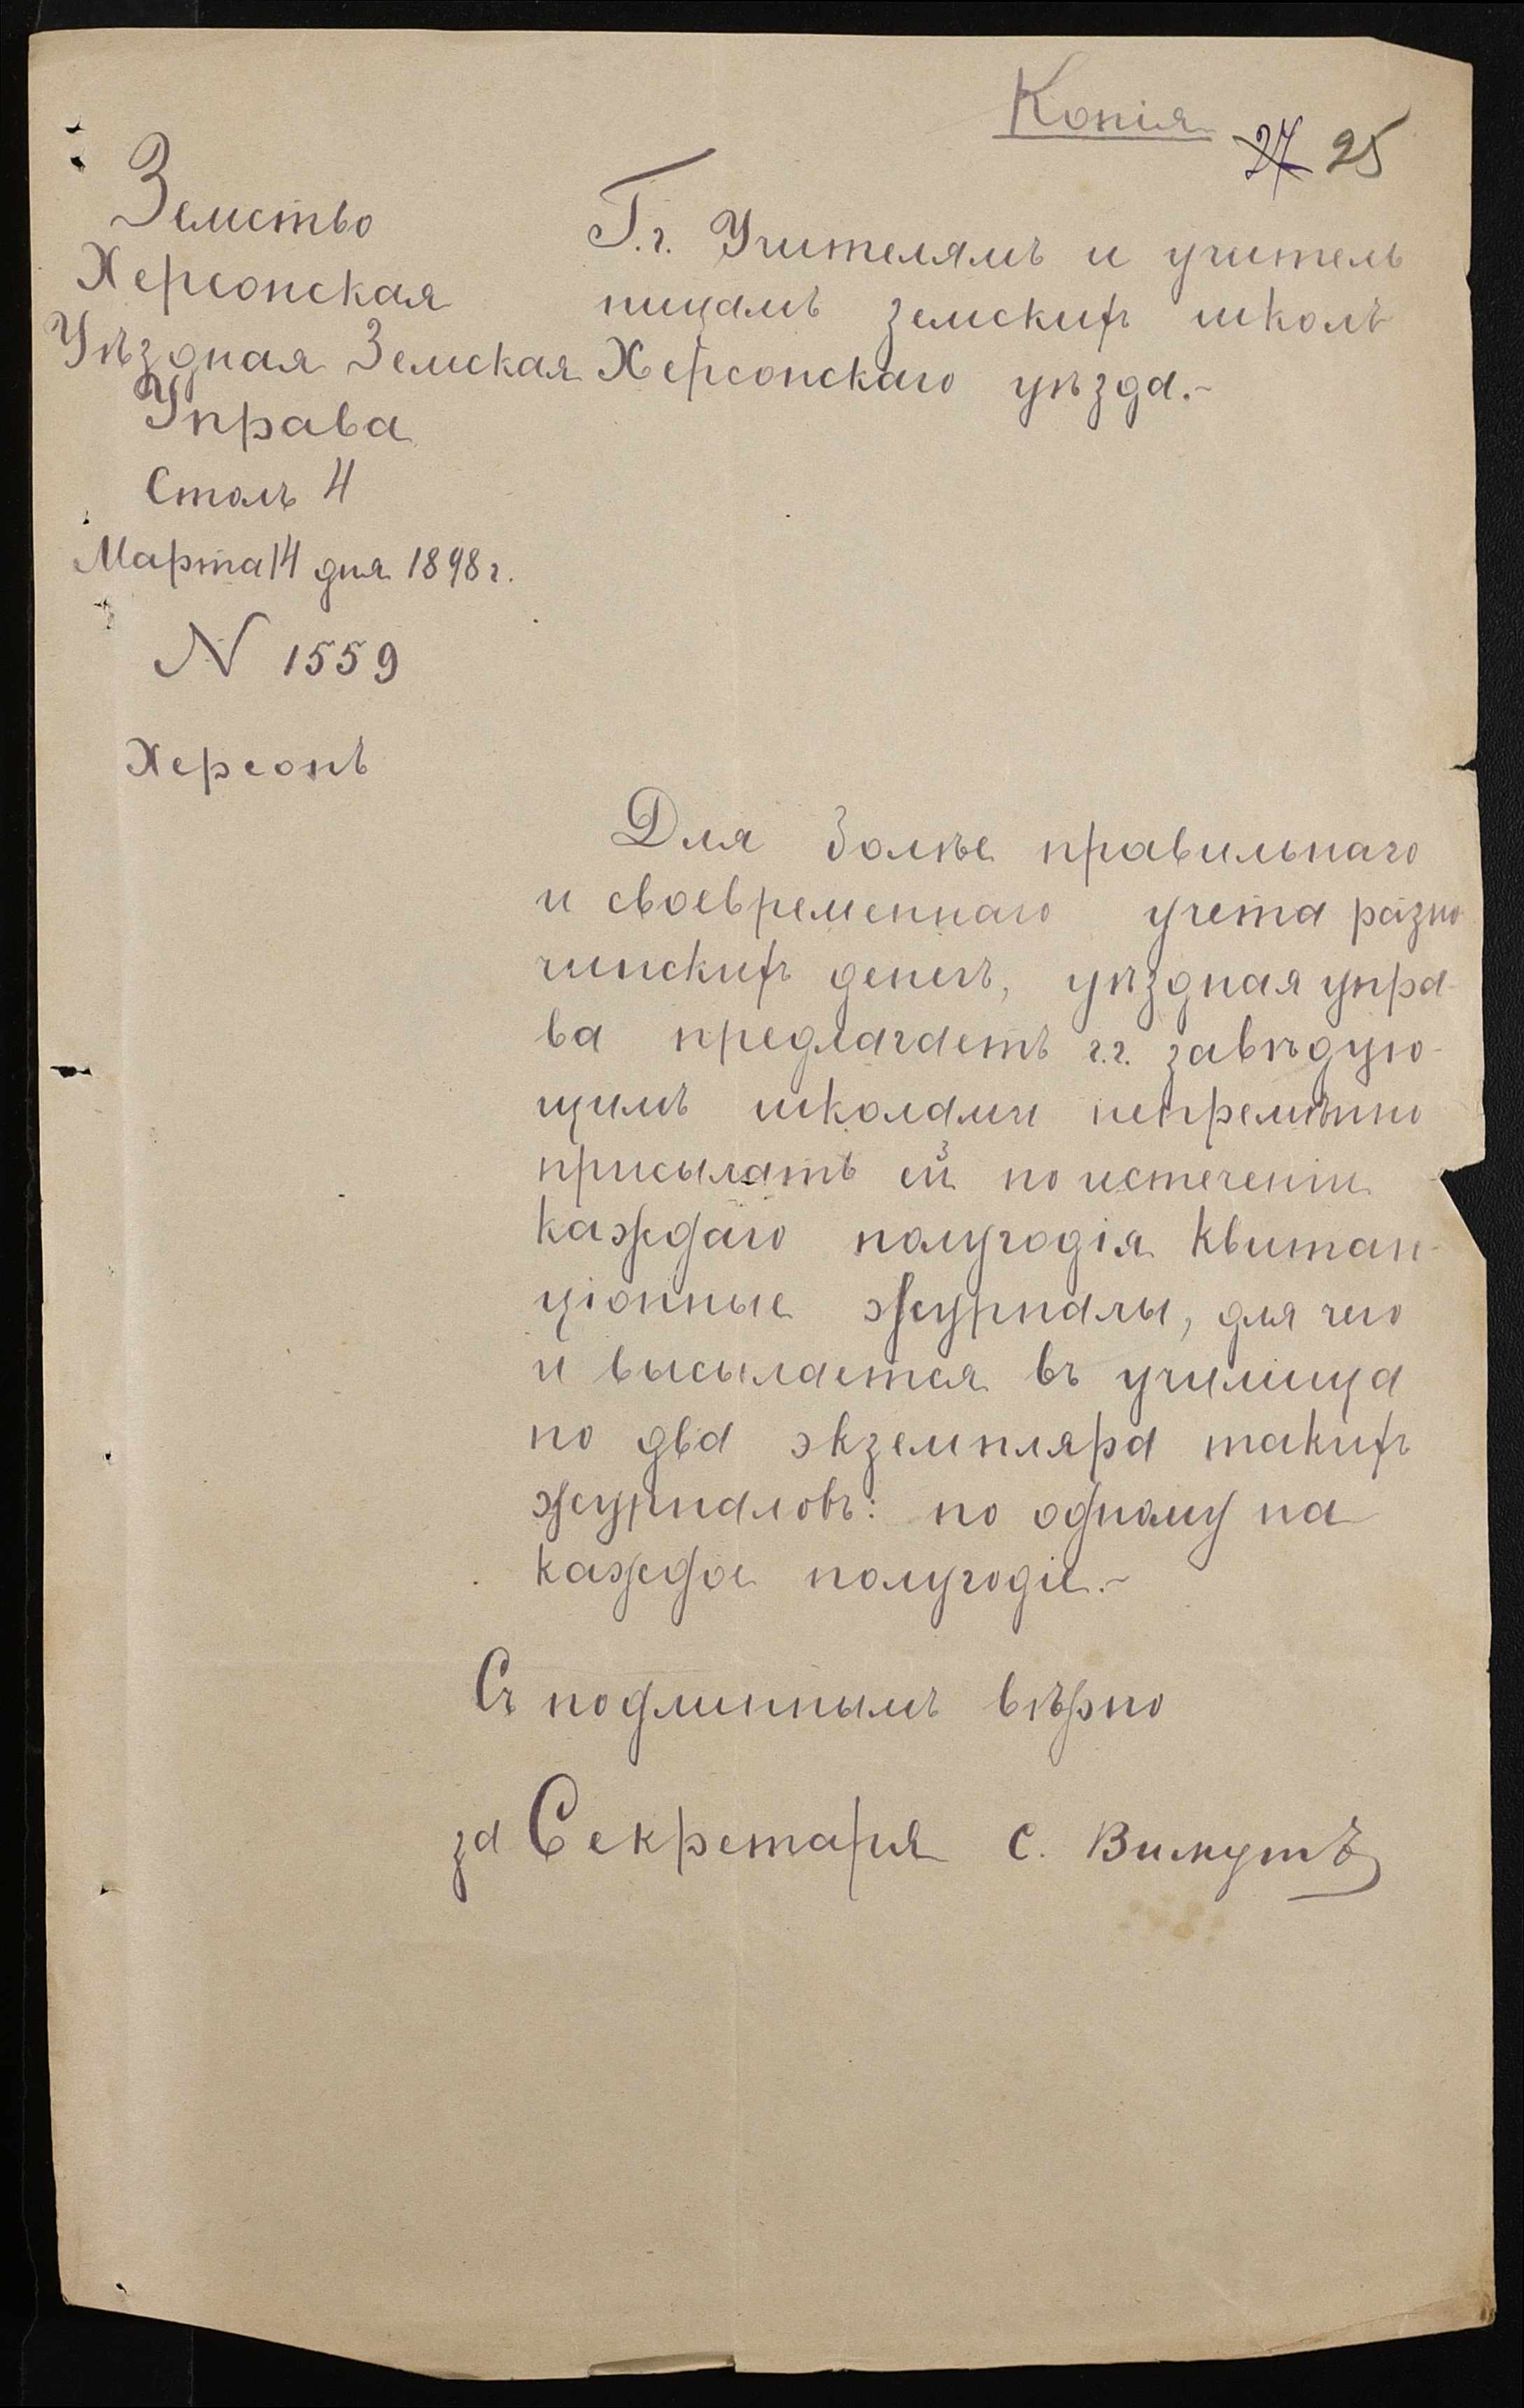 Копія
27 25
Земство
Херсонская
Уѣздная Земская
Управа
Столъ 4
Марта 14 дня 1898 г.
N 1559
Херсонъ
Г.г. Учителямъ и учитель
ницамъ земскихъ школъ
Херсонскаго уѣзда.-
Для болѣе правильнаго
и своевременнаго учета разно
чинскихъ денегъ, уѣздная упра-
ва предлагаетъ г.г. завѣдую-
щимъ школами непремѣнно
присылать ей по истеченіи
каждаго полугодія квитан-
ціонные журналы, для чего
и высылается въ училища
по два экземпляра такихъ
журналовъ: по одному на
каждое полугодіе.-
Съ подлиннымъ вѣрно
за Секретаря С.